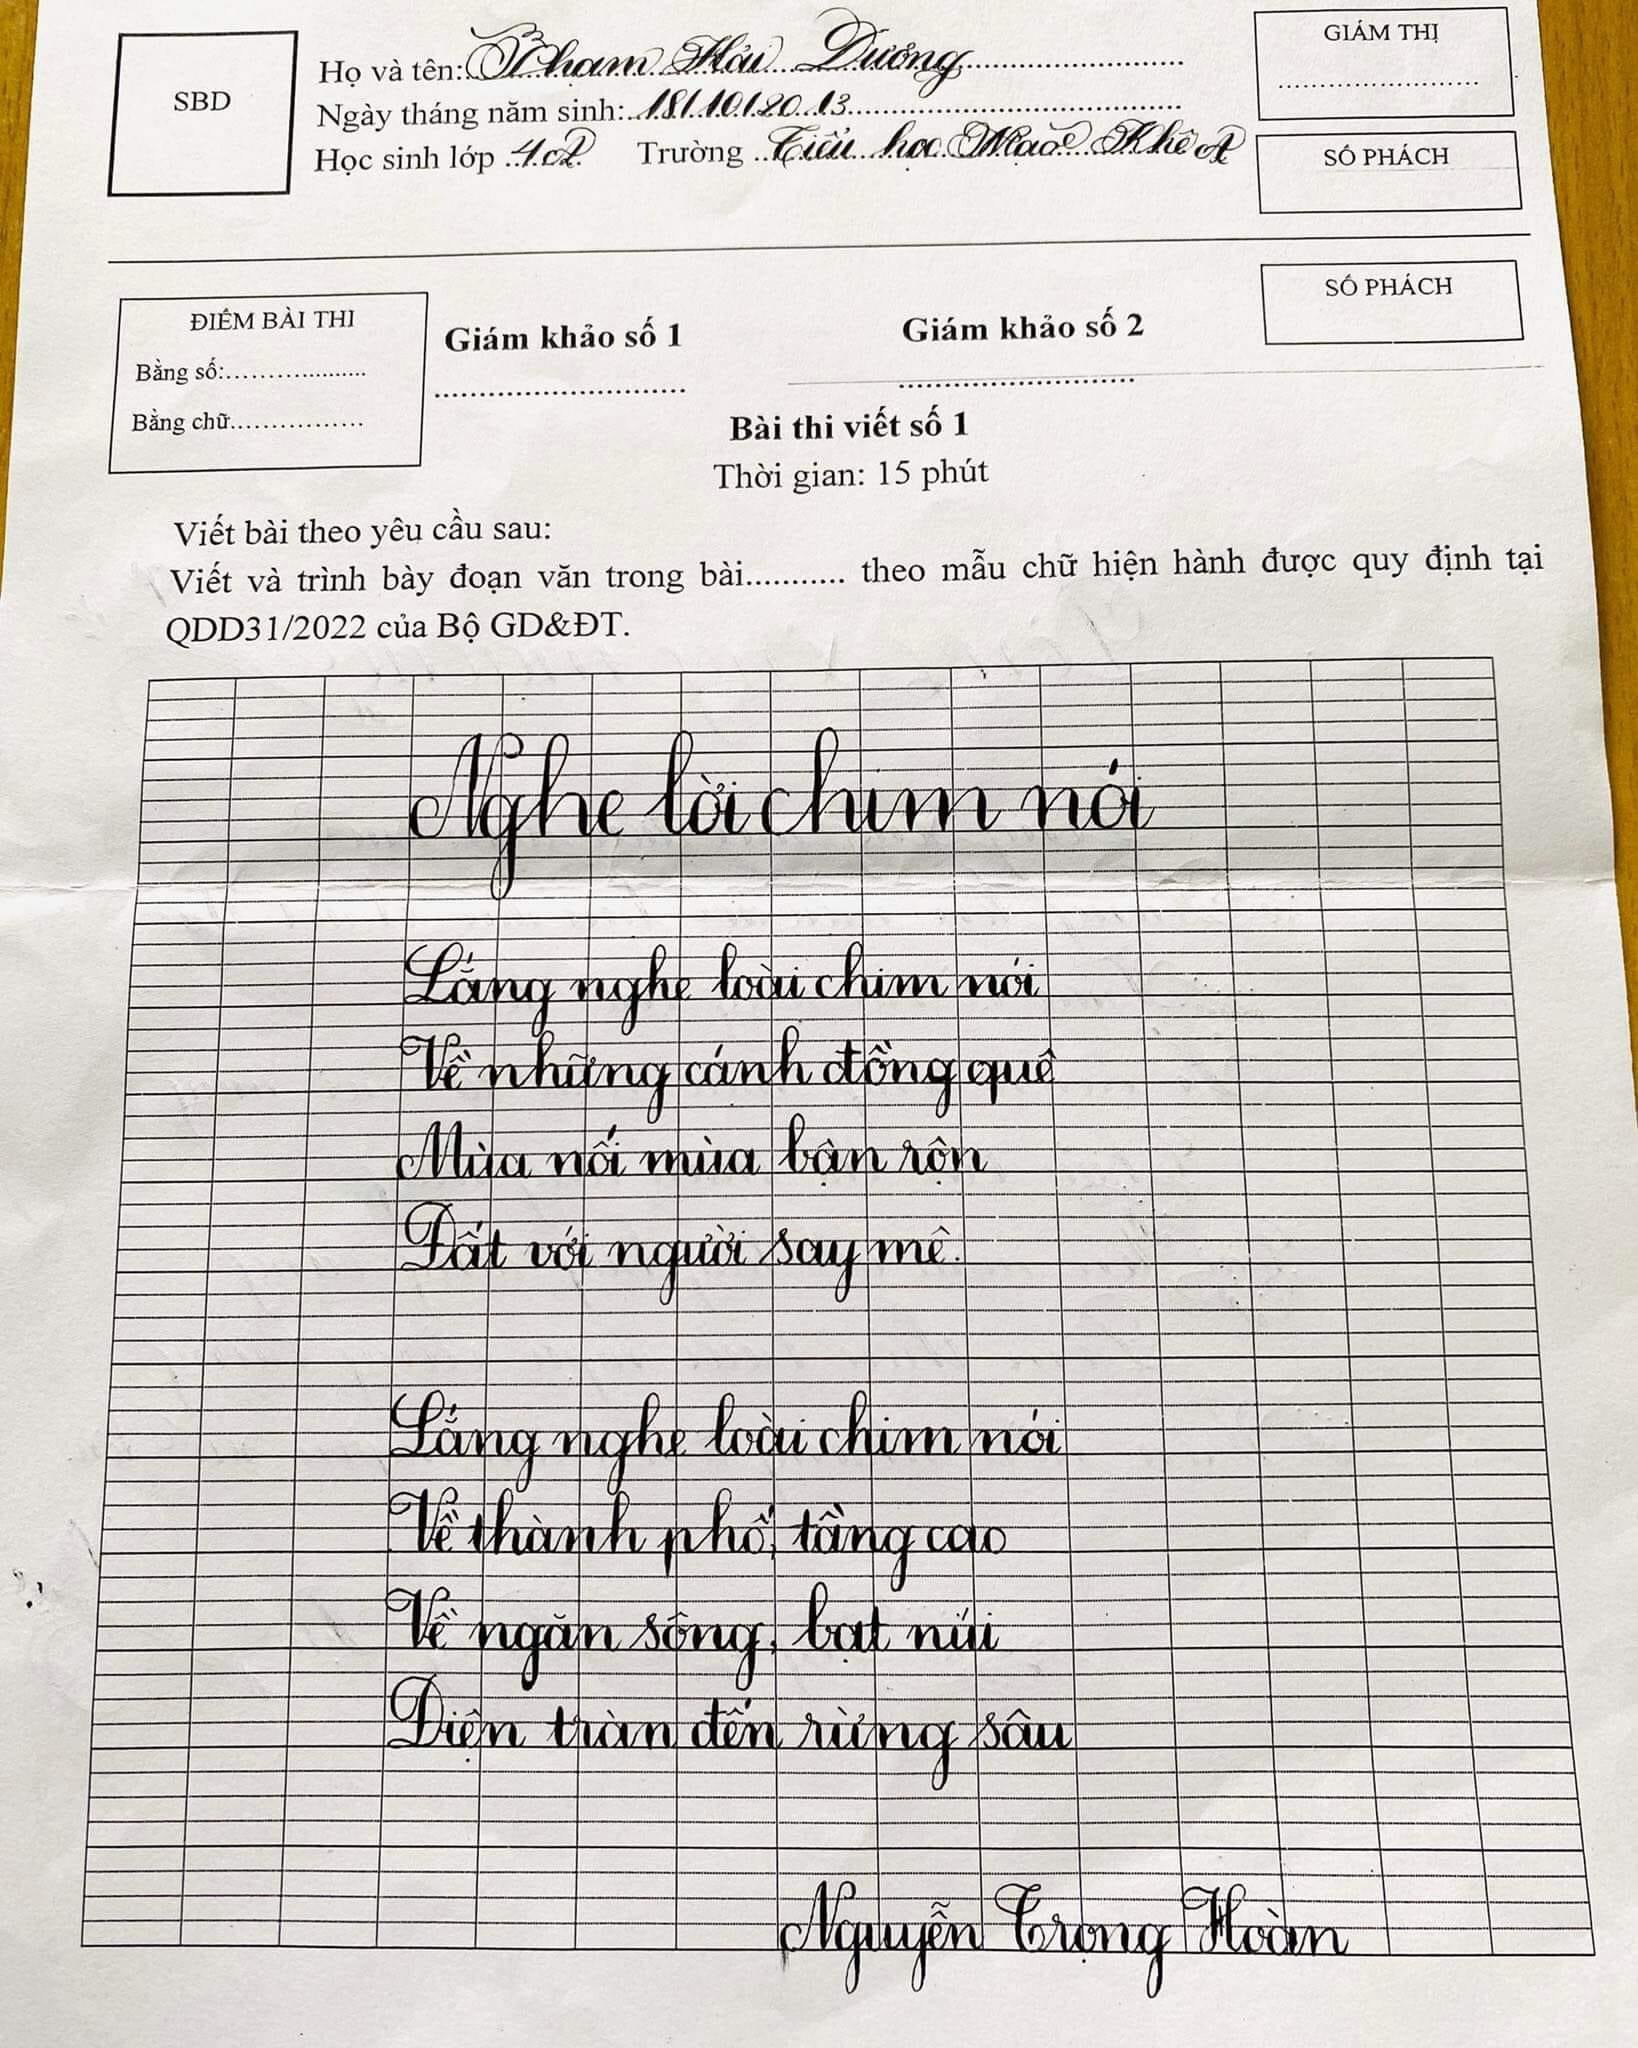 SBD
Họ và tên: Phạm Hải Dương
Ngày tháng năm sinh: 18/10/2013
Học sinh lớp 4A2 Trường Tiểu học Mạo Khê A
GIÁM THỊ
SỐ PHÁCH
ĐIỂM BÀI THI
Bằng số:
Bằng chữ
Giám khảo số 1
Giám khảo số 2
SỐ PHÁCH
Bài thi viết số 1
Thời gian: 15 phút
Viết bài theo yêu cầu sau:
Viết và trình bày đoạn văn trong bài........... theo mẫu chữ hiện hành được quy định tại
QDD31/2022 của Bộ GD&ĐT.
Nghe lời chim nói
Lắng nghe loài chim nói
Về những cánh đồng quê
Mùa nối mùa bận rộn
Đất với người say mê.
Lắng nghe loài chim nói
Về thành phố, tầng cao
Về ngăn sông, bạt núi
Điện tràn đến rừng sâu
Nguyễn Trọng Hoàn